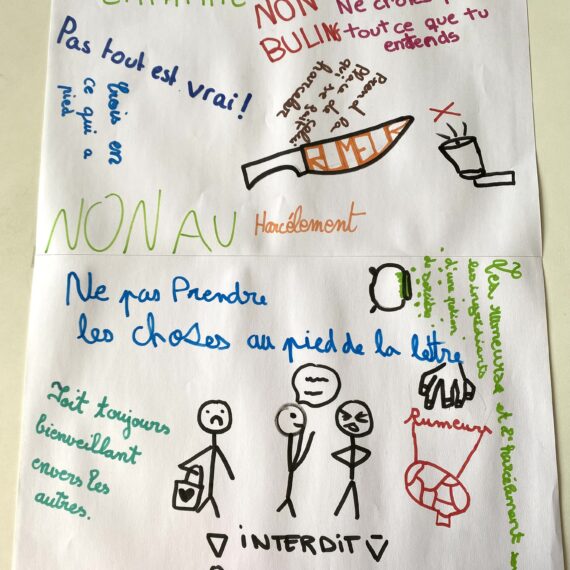 NON
BULING
Ne crois p
tout ce que tu
entends
Pas tout est vrai!
Crois en
ce qui a
pied
Prend
plaise de la
qui se suffit
RUMEUR
NON AU Harcélement
Ne pas Prendre
les choses au pied de la lettre
Les rumeurse et l'harcélement son
les ingrédients
d'une potion
de sorcière
Soit toujours
bienveillant
envers les
autres.
Rumeurs
INTERDIT